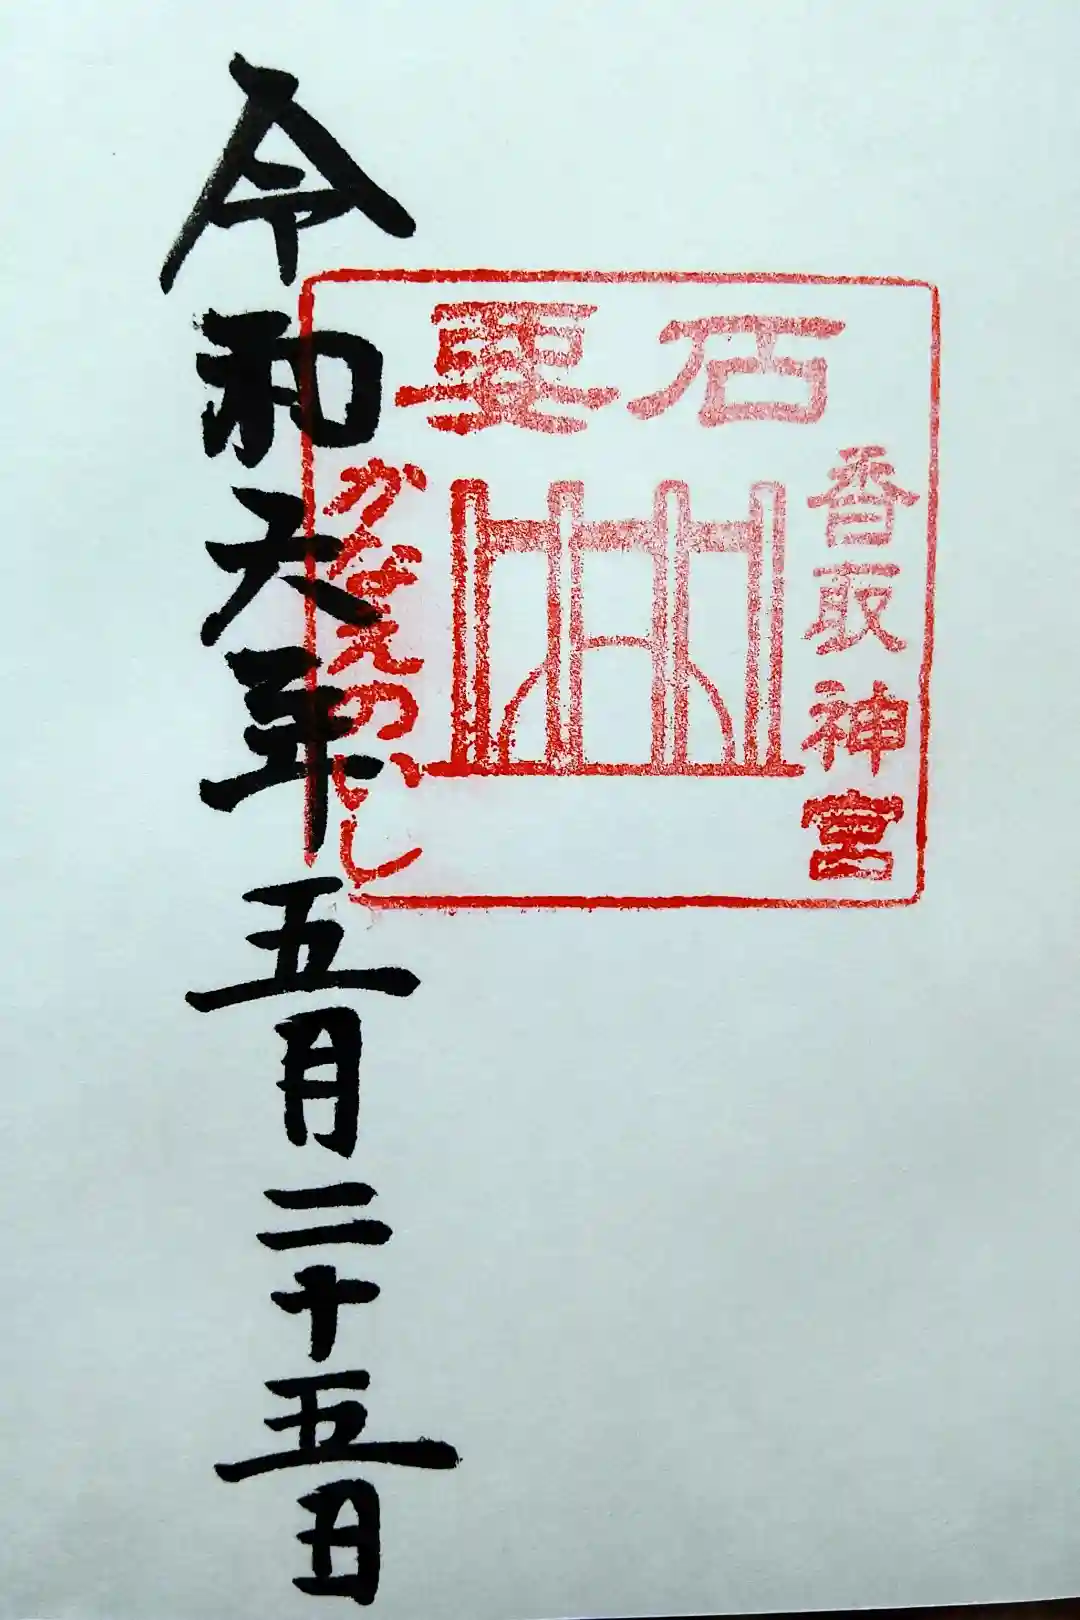 要石
香取神宮
かなめいし
令和六年五月二十五日